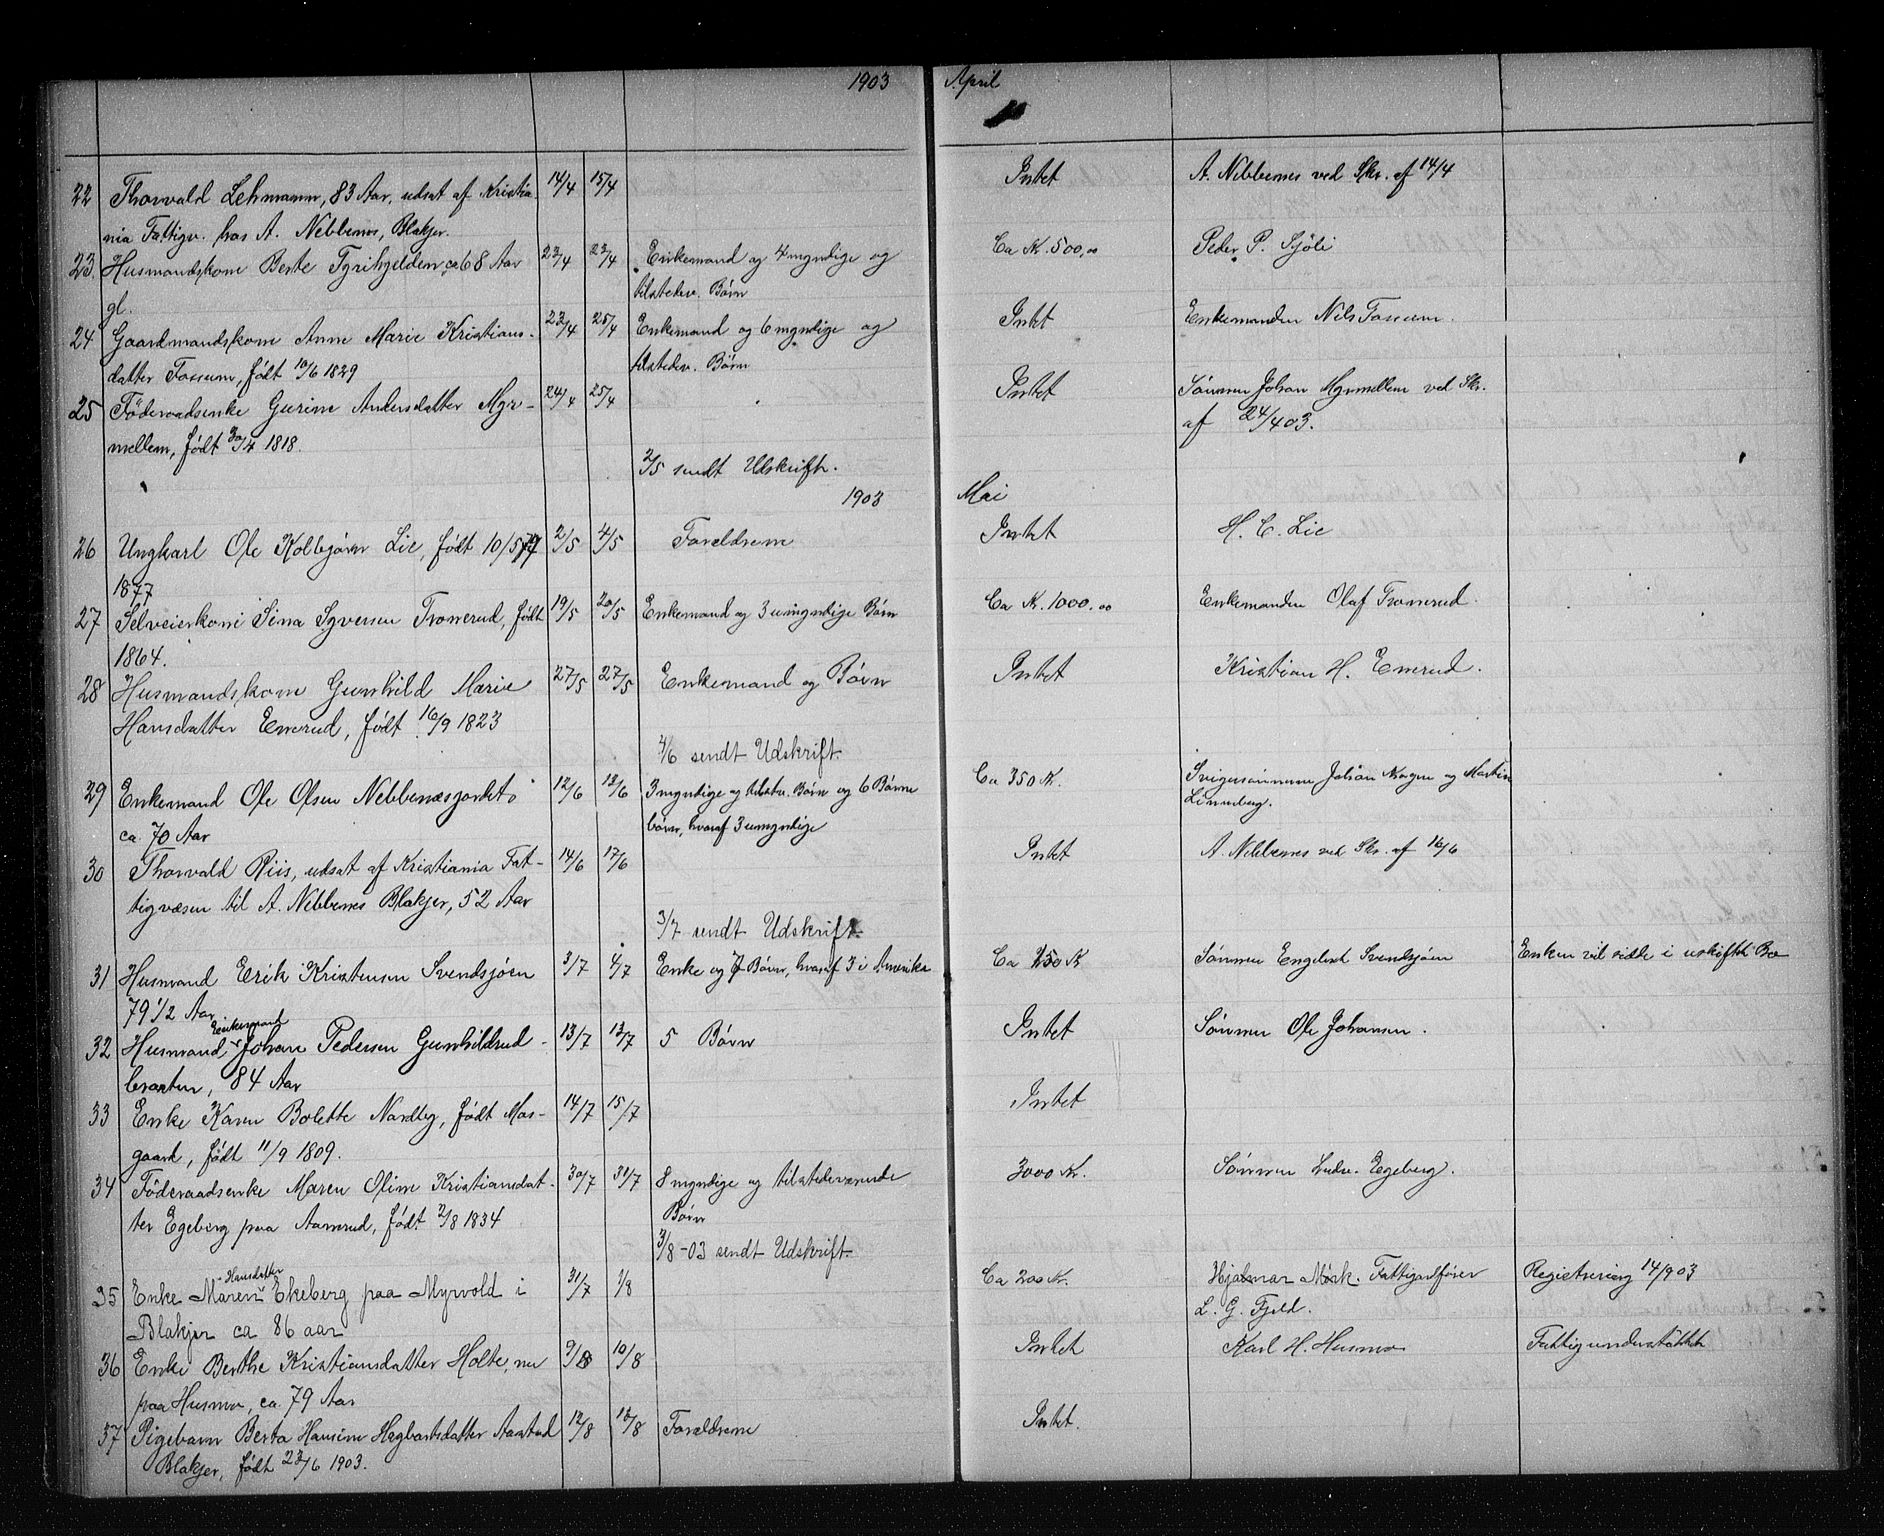 1903 April
22 Thorvald Lehmann, 83 Aar, udsat af Kristia- 14/4 15/4 Intet A. Nebbenes ved Skr. af 14/4
nia Fattigv. hos A. Nebbenes, Blakjer.
23. Husmandskone Berte Tyrihjelden, ca 68 Aar 22/4 23/4 Enkemand og 4 myndige og Ca Kr. 500,00 Peder P. Sjöli
gl. tilstedev. Børn
24 Gaardmandskone Anne Marie Kristians- 23/4 25/4 Enkemand og 6 myndige og Intet Enkemanden Nils Fossum.
datter Fossum, født 10/6 1829 tilstedev. Børn
25 Föderaadsenke Gurine Andersdatter Myr- 24/4 25/4 Intet Sönnen Johan Myrmellem ved Skr.
mellem, født 30/4 1818. af 24/4 03.
2/5 sendt Udskrift.
1903 Mai
26 Ungkarl Ole Kolbjörn Lie, født 10/5 2/5 4/5 Forældrene Intet H. C. Lie
1877
27 Selveierkone Sina Syversen Tronerud, født 19/5 20/5 Enkemand og 3 umyndige Børn Ca Kr. 1000.00 Enkemanden Olaf Tronerud.
1864.
28 Husmandskone Gunhild Marie 27/5 27/5 Enkemand og Børn Intet Kristian H. Enerud.
Hansdatter Enerud, født 16/9 1823
4/6 sendt Udskrift.
29 Enkemand Ole Olsen Nebbenæsjordet 12/6 13/6 3 myndige og tilstv. Børn og 6 Børne Ca 350 Kr. Svigersönnene Johan Mogen og Martin
ca 70 Aar børn, hvoraf 3 umyndige Linneberg.
30 Thorvald Riis, udsat af Kristiania Fat- 14/6 17/6 Intet A. Nebbenes ved Skr. af 16/6
tigvæsen til A. Nebbenes Blakjer, 52 Aar
3/7 sendt Udskrift.
31 Husmand Erik Kristensen Svendsjöen 3/7 4/7 Enke og 7 Børn, hvoraf 3 i Amerika Ca 250 Kr Sönnen Engebret Svendsjöen Enken vil sidde i uskiftet Bo
79 1/2 Aar
Enkemand
32 Husmand Johan Pedersen Gunhildrud- 13/7 13/7 5 Børn Intet Sönnen Ole Johansen.
braaten, 84 Aar
33 Enke Karen Bolette Nordby, født Mos- 14/7 15/7 Intet
gaard, født 11/9 1809.
34 Föderaadsenke Maren Oline Kristiansdat- 30/7 31/7 8 myndige og tilstedeværende 3000 Kr. Sönnen Ludv. Egeberg.
ter Egeberg paa Aamrud, født 2/8 1834 Børn
3/8-03 sendt Udskrift.
Hansdatter
35 Enke Maren Ekeberg paa Myrvold i 31/7 1/8 Ca 200 Kr. Hjalmar Mörk. Fattigforstander Registrering 14/9 03
Blakjer ca 86 aar L. G. Fjeld.
36 Enke Berthe Kristiansdatter Holte, nu 9/8 10/8 Intet Karl H. Husmo Fattigunderstöttet
paa Husmo, ca. 79 Aar
37 Pigebarn Berta Hansine Hagbartsdatter Aastad 12/8 13/8 Forældrene Intet.
Blakjer, født 23/6 1903.